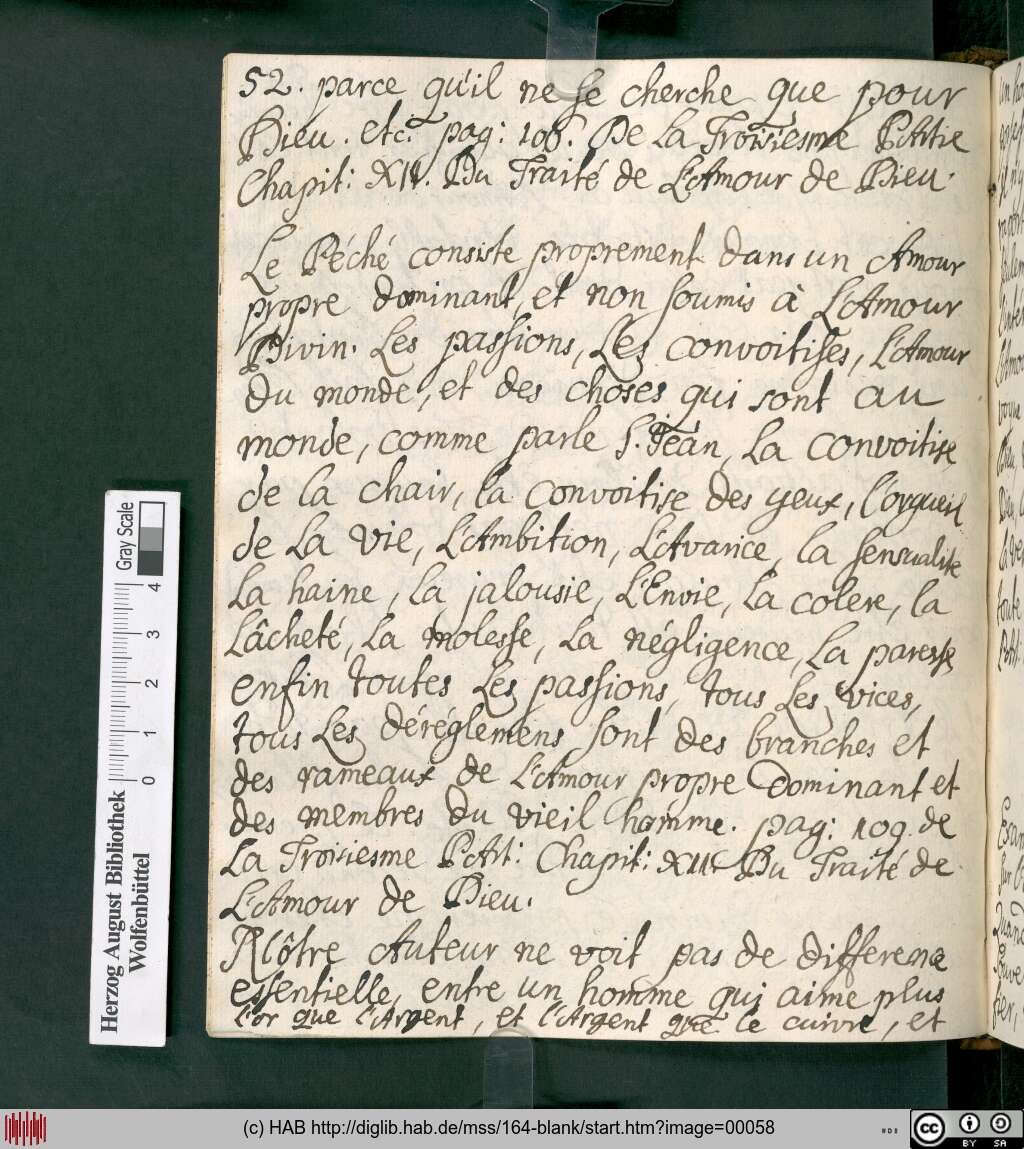 52. parce qu'il ne se cherche que pour
Dieu. etc. pag: 108. De La Troisiesme PArtie
Chapit: XII. Du Traité de L'Amour de Dieu.
Le Péché consiste proprement dans un Amour
propre dominant, et non soumis à L'Amour
Divin. Les passions, Les convoitises, L'Amour
du monde, et des choses qui sont au
monde, comme parle S. Jean, La convoitise
de la chair, la convoitise des yeux, l'orgueil
de La vie, L'Ambition, L'Avarice, la sensualité
La haine, la jalousie, L'Envie, La colere, la
Lâcheté, La molesse, La négligence, La paresse,
enfin toutes Les passions, tous Les vices,
tous Les déréglemens sont des branches et
des rameaux de L'Amour propre Dominant et
des membres du vieil homme. pag: 109. de
La Troisiesme PArt: Chapit: XIII Du Traité de
L'Amour de Dieu.
Nôtre Auteur ne voit pas de difference
essentielle, entre un homme qui aime plus
l'or que l'Argent, et l'Argent que le cuivre, et
Gray Scale
0 1 2 3 4
Herzog August Bibliothek
Wolfenbüttel
(c) HAB http://diglib.hab.de/mss/164-blank/start.htm?image=00058
cc BY SA